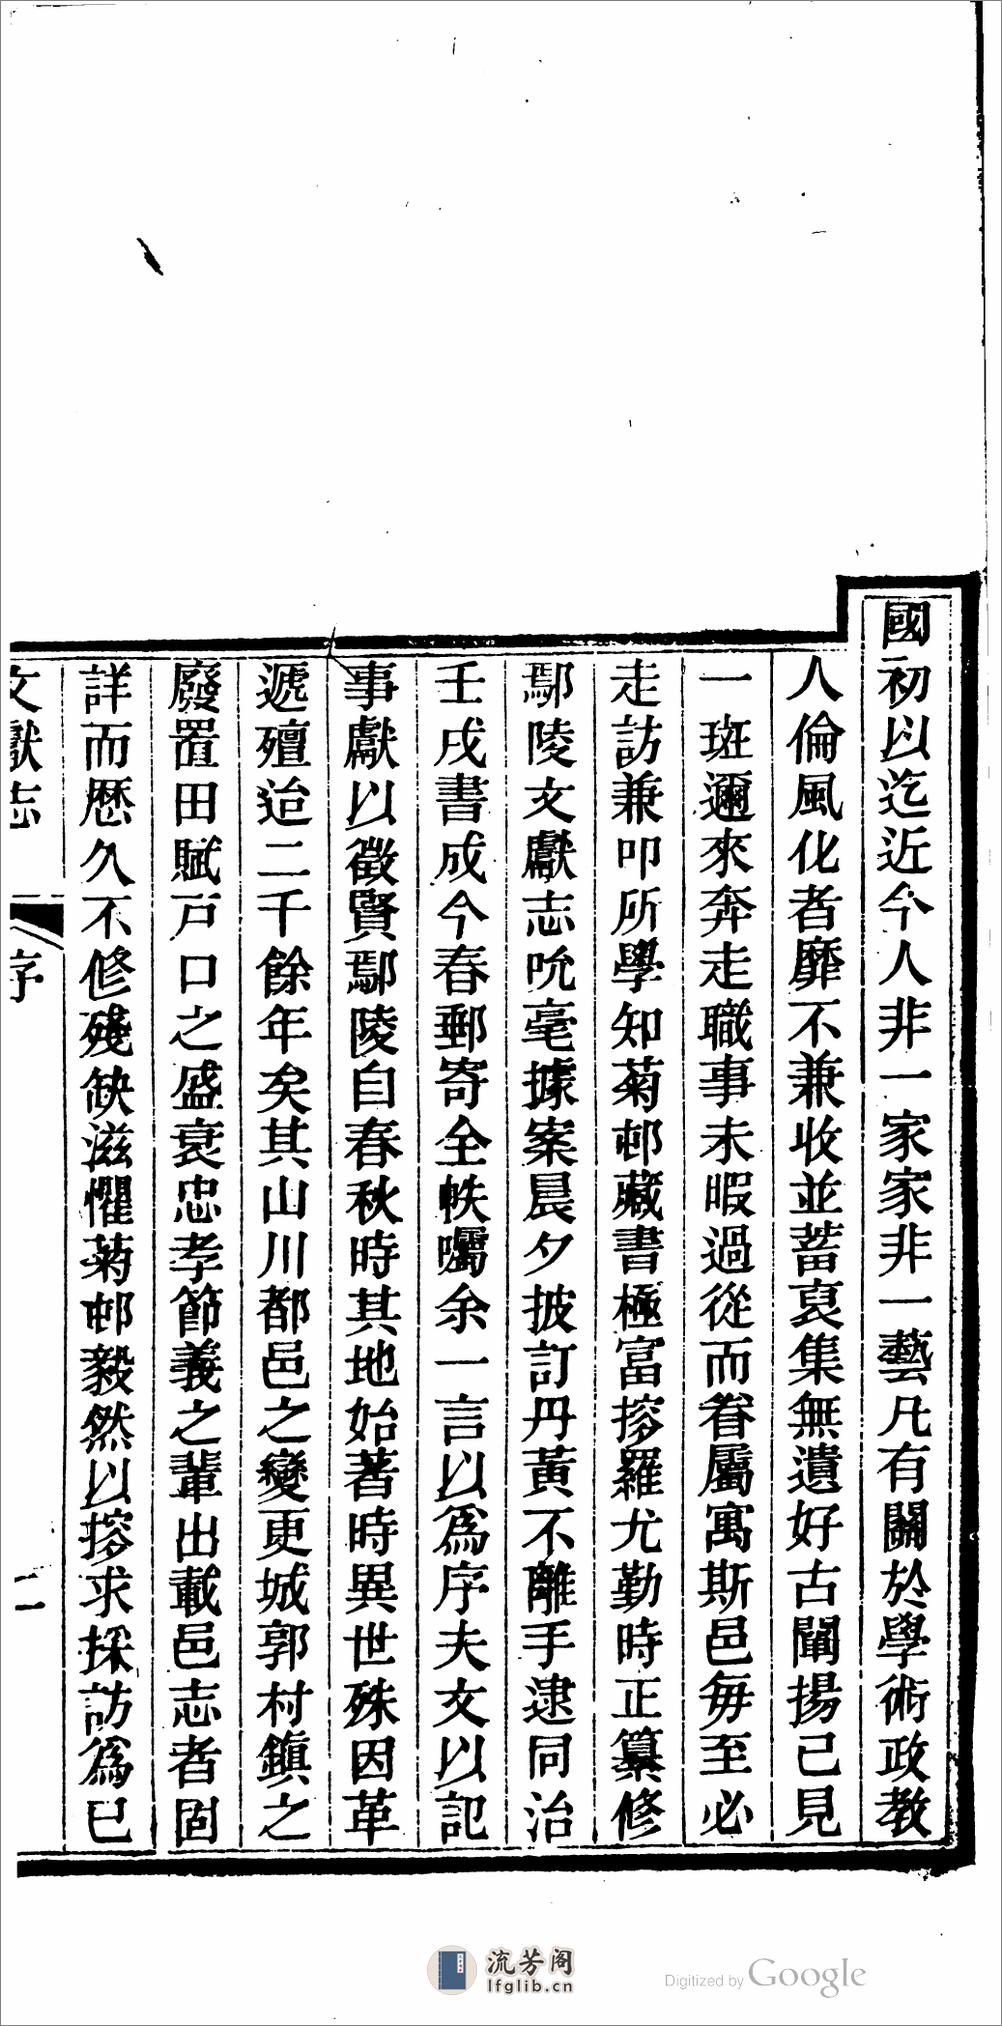 國初以迄近今人非一家家非一藝凡有關於學術政教
人倫風化者靡不兼收並蓄裒集無遺好古闡揚已見
一斑邇來奔走職事未暇過從而眷屬寓斯邑每至必
走訪兼叩所學知菊邨藏書極富搜羅尤勤時正纂修
鄢陵文獻志吮毫據案晨夕披訂丹黃不離手逮同治
壬戌書成今春郵寄全帙囑余一言以為序夫文以記
事獻以徵賢鄢陵自春秋時其地始著時異世殊因革
遞殫迨二千餘年矣其山川都邑之變更城郭村鎮之
廢置田賦戶口之盛衰忠孝節義之輩出載邑志者固
詳而歷久不修殘缺滋懼菊邨毅然以搜求採訪為已
文獻志 序 二
流芳阁
lfglib.cn
Digitized by Google